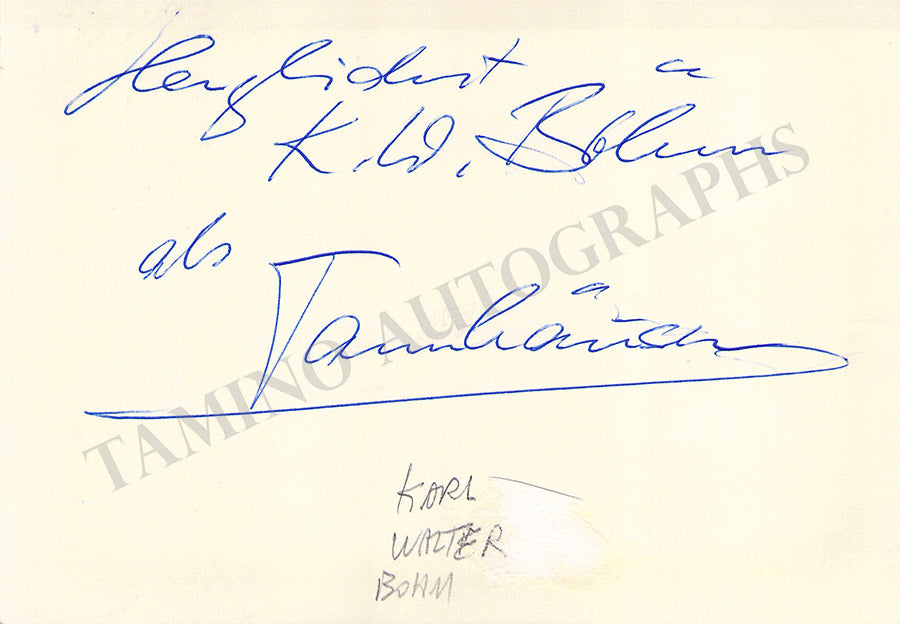 Herzlichst
K. W. Böhm
als
Tannhäuser
TAMINO AUTOGRAPHS
KARL
WALTER
BOHM